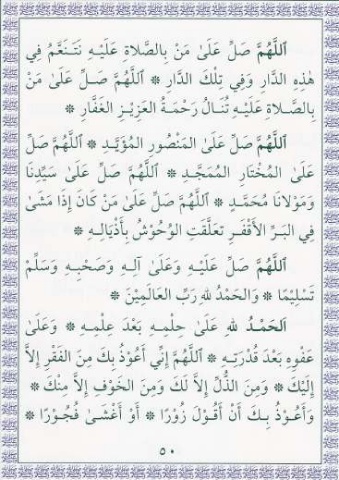 اَللَّهُمَّ صَلِّ عَلَىٰ مَنْ بِالصَّلَاةِ عَلَيْهِ نَتَنَعَّمُ فِي
هٰذِهِ الدَّارِ وَفِي تِلْكَ الدَّارِ * اَللَّهُمَّ صَلِّ عَلَىٰ مَنْ
بِالصَّلَاةِ عَلَيْهِ تُنَالُ رَحْمَةُ العَزِيزِ الغَفَّارِ *
اَللَّهُمَّ صَلِّ عَلَىٰ المَنْصُورِ المُؤَيَّدِ * اَللَّهُمَّ صَلِّ
عَلَىٰ المُخْتَارِ المُمَجَّدِ * اَللَّهُمَّ صَلِّ عَلَىٰ سَيِّدِنَا
وَمَوْلَانَا مُحَمَّدٍ * اَللَّهُمَّ صَلِّ عَلَىٰ مَنْ كَانَ إِذَا مَشَىٰ
فِي البَرِّ الأَقْفَرِ تَعَلَّقَتِ الوُحُوشُ بِأَذْيَالِهِ *
اَللَّهُمَّ صَلِّ عَلَيْهِ وَعَلَىٰ آلِهِ وَصَحْبِهِ وَسَلِّمْ
تَسْلِيمًا * وَالحَمْدُ لله رَبِّ العَالَمِيْنَ *
اَلحَمْدُ لله عَلَىٰ حِلْمِهِ بَعْدَ عِلْمِهِ * وَعَلَىٰ
عَفْوِهِ بَعْدَ قُدْرَتِهِ * اَللَّهُمَّ إِنِّي أَعُوْذُ بِكَ مِنَ الفَقْرِ إِلاَّ
إِلَيْكَ * وَمِنَ الذُّلِّ إِلاَّ لَكَ وَمِنَ الخَوْفِ إِلاَّ مِنْكَ *
وَأَعُوْذُ بِكَ أَنْ أَقُوْلَ زُوْرًا * أَوْ أَغْشَىٰ فُجُوْرًا *
٥٠